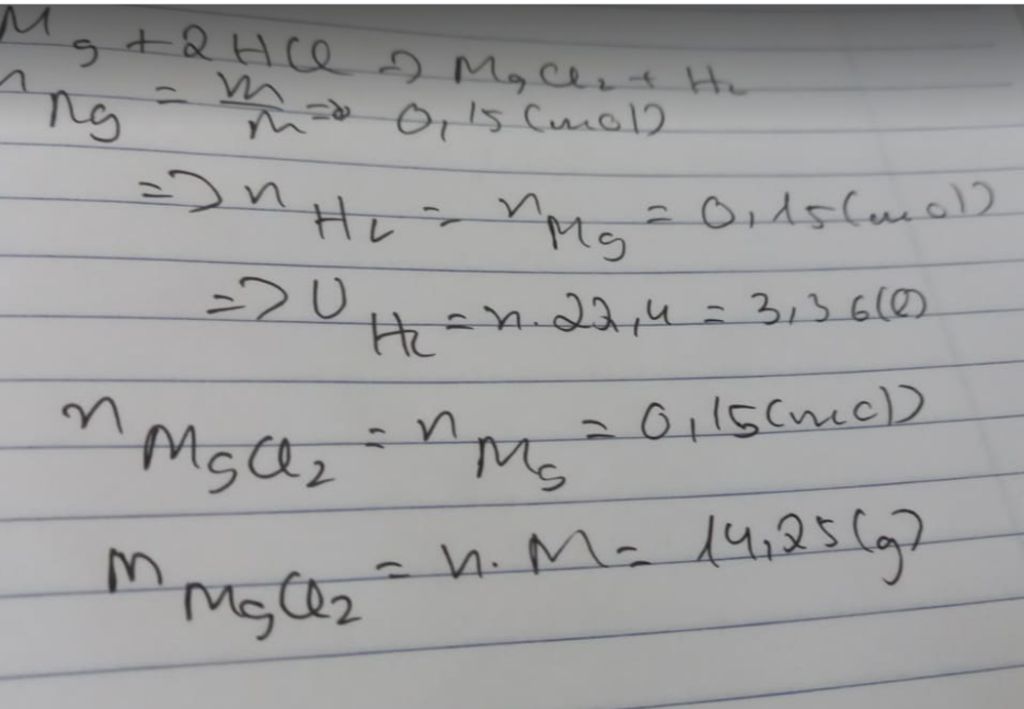 Mg + 2HCl => MgCl2 + H2
n Mg = m/M => 0,15 (mol)
=> n H2 = n Mg = 0,15 (mol)
=> V H2 = n. 22,4 = 3,36 (l)
n MgCl2 = n Mg = 0,15 (mol)
m MgCl2 = n. M = 14,25 (g)